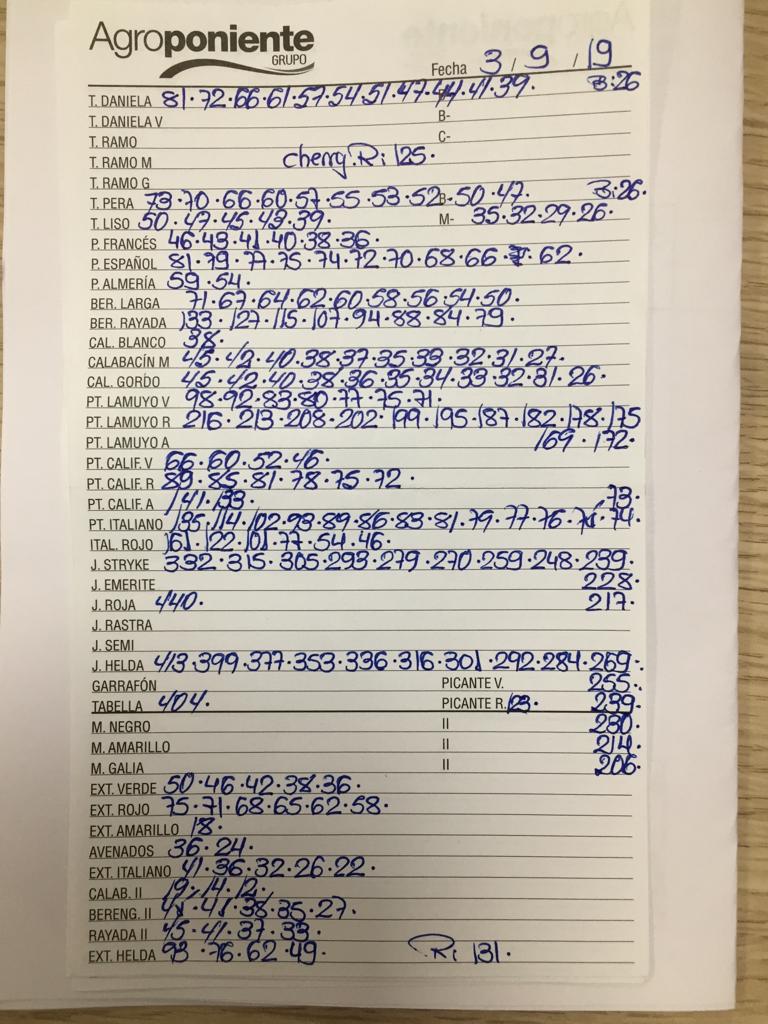 Agroponiente
GRUPO
Fecha 3 / 9 / 19
T. DANIELA 81·72·66·61·57·54·51·47·44·41·39· B:26
T. DANIELA V B-
T. RAMO C-
T. RAMO M cherry.Ri 125·
T. RAMO G
T. PERA 73·70·66·60·57·55·53·52 B-·50·47· B:26·
T. LISO 50·47·45·43·39· M- 35·32·29·26·
P. FRANCÉS 46·43·41·40·38·36·
P. ESPAÑOL 81·79·77·75·74·72·70·68·66· 62·
P. ALMERÍA 59·54·
BER. LARGA 71·67·64·62·60·58·56·54·50·
BER. RAYADA 133·127·115·107·94·88·84·79·
CAL. BLANCO 38·
CALABACÍN M 45·42·40·38·37·35·33·32·31·27·
CAL. GORDO 45·42·40·38·36·35·34·33·32·31·26·
PT. LAMUYO V 98·92·83·80·77·75·71·
PT. LAMUYO R 216·213·208·202·199·195·187·182·178·175
PT. LAMUYO A 169·172·
PT. CALIF. V 66·60·52·46·
PT. CALIF. R 89·85·81·78·75·72·
PT. CALIF. A 141·133· 73·
PT. ITALIANO 135·114·102·93·89·86·83·81·79·77·76· 74·
ITAL. ROJO 161·122·101·77·54·46·
J. STRYKE 332·315·305·293·279·270·259·248·239·
J. EMERITE 228·
J. ROJA 440· 217·
J. RASTRA
J. SEMI
J. HELDA 413·399·377·353·336·316·301·292·284·269·
GARRAFÓN PICANTE V. 255·
TABELLA 404· PICANTE R. 123· 239·
M. NEGRO II 230·
M. AMARILLO II 214·
M. GALIA II 206·
EXT. VERDE 50·46·42·38·36·
EXT. ROJO 75·71·68·65·62·58·
EXT. AMARILLO 18·
AVENADOS 36·24·
EXT. ITALIANO 41·36·32·26·22·
CALAB. II 19·14·12·
BERENG. II 41·38·35·27·
RAYADA II 45·41·37·33·
EXT. HELDA 93·76·62·49· Ri 131·